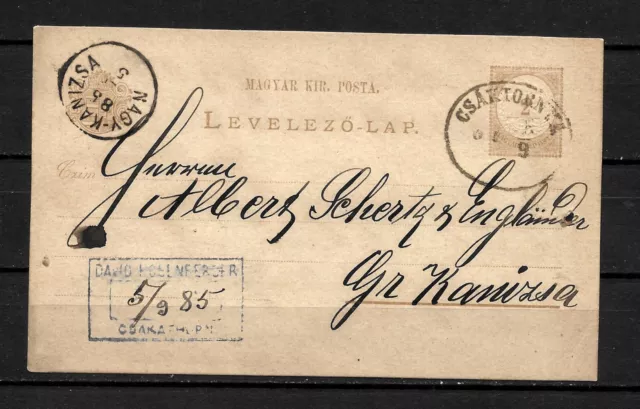 NAGY-KANIZSA
85
5
MAGYAR KIR. POSTA.
LEVELEZŐ-LAP.
CSÁKTORNYA
9
Czim
Herren
Albert Schertz & Engländer
Gr Kanizsa
DAVID
5/9 85